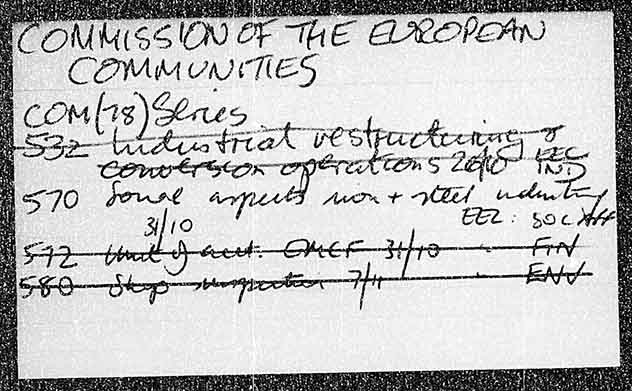 COMMISSION OF THE EUROPEAN
COMMUNITIES
COM(78) Series
532 Industrial restructuring &
conversion operations 20/10 EEC IND
570 Social aspects iron + steel industry
31/10 EEC: SOC AFF
572 Unit of acct. EMCF 31/10 " FIN
580 Ship inspection 7/11 " ENV